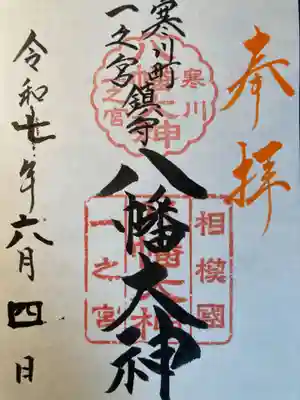 奉拝
寒川町
一之宮鎮守
寒川
八幡大神
一之宮
八幡大神
相模國
一之宮
令和七年六月四日